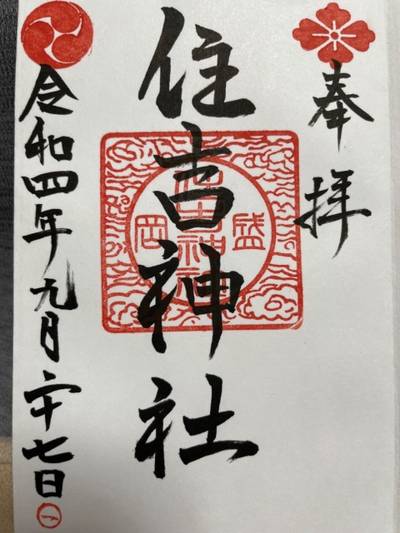 奉拝
住吉神社
盛岡
令和四年九月二十七日